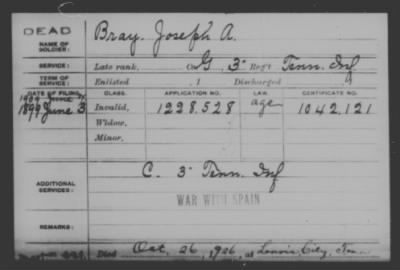 DEAD
NAME OF SOLDIER: Bray. Joseph A.
SERVICE: Late rank, Co G 3 Reg't Tenn. Inf
TERM OF SERVICE: Enlisted , 1 Discharged
DATE OF FILING. CLASS. APPLICATION NO. LAW. CERTIFICATE NO.
1899 June 3 Invalid, 1228.528 age 1042,121
Widow,
Minor,
ADDITIONAL SERVICES: C. 3 Tenn. Inf
WAR WITH SPAIN
REMARKS:
Died Oct. 26, 1926, at Lenoir City, Tenn